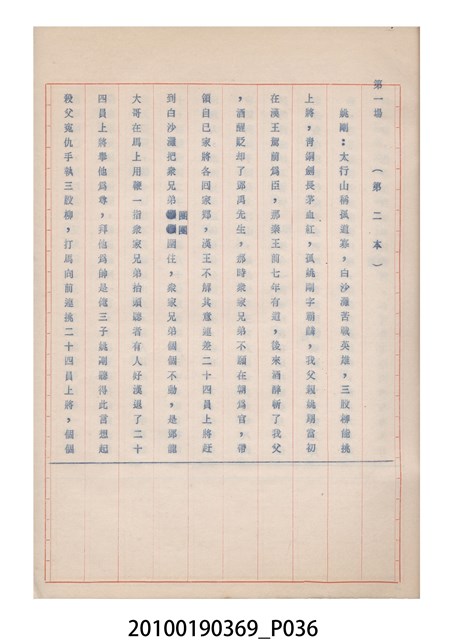 第一場
（第二本）
姚剛：太行山稱孤道寡，白沙灘苦戰英雄，三股柳能挑
上將，青銅劍長茅血紅，孤姚剛字朝麟，我父親姚期當初
在漢王駕前爲臣，那漢王前七年有道，後來酒醉斬了我父
，酒醒貶却了鄧禹先生，那時衆家兄弟不願在朝爲官，帶
領自己家將各回家鄉，漢王不解其意連差二十四員上將赶
到白沙灘把衆兄弟團團圍住，衆家兄弟個個不動，是鄧龍
大哥在馬上用鞭一指衆家兄弟抬頭聽者有人好漢退了二十
四員上將擧他爲尊，拜他爲帥是俺三子姚剛聽得此言想起
殺父寃仇手執三股柳，打馬向前連挑二十四員上將，個個
20100190369_P036